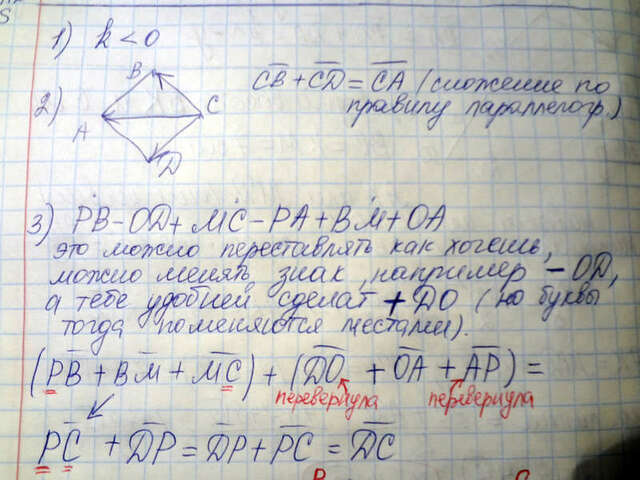 S
1) k < 0
2) B A C D
C̅B̅ + C̅D̅ = C̅A̅ (сложение по
правилу параллелогр.)
3) PB - OD + MC - PA + BM + OA
это можно переставлять как хочешь,
можно менять знак, например - OD,
а тебе удобней сделат + DO (но буквы
тогда поменяются местами).
(P̅B̅ + B̅M̅ + M̅C̅) + (D̅O̅ + O̅A̅ + A̅P̅) =
перевернула перевернула
P̅C̅ + D̅P̅ = D̅P̅ + P̅C̅ = D̅C̅